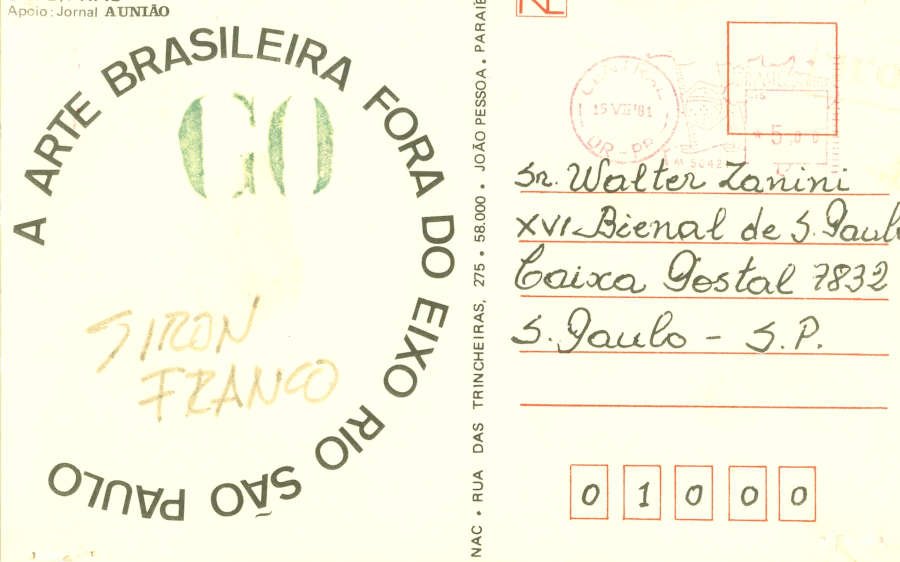 Apoio: Jornal A UNIÃO
A ARTE BRASILEIRA FORA DO EIXO RIO SÃO PAULO
GO
SIRON
FRANCO
NAC • RUA DAS TRINCHEIRAS, 275 • 58.000 • JOÃO PESSOA • PARAÍB
CENTRAL
15 VII 81
DR-PB
Sr. Walter Zanini
XVI Bienal de S. Paulo
Caixa Postal 7832
S. Paulo - S.P.
0 1 0 0 0